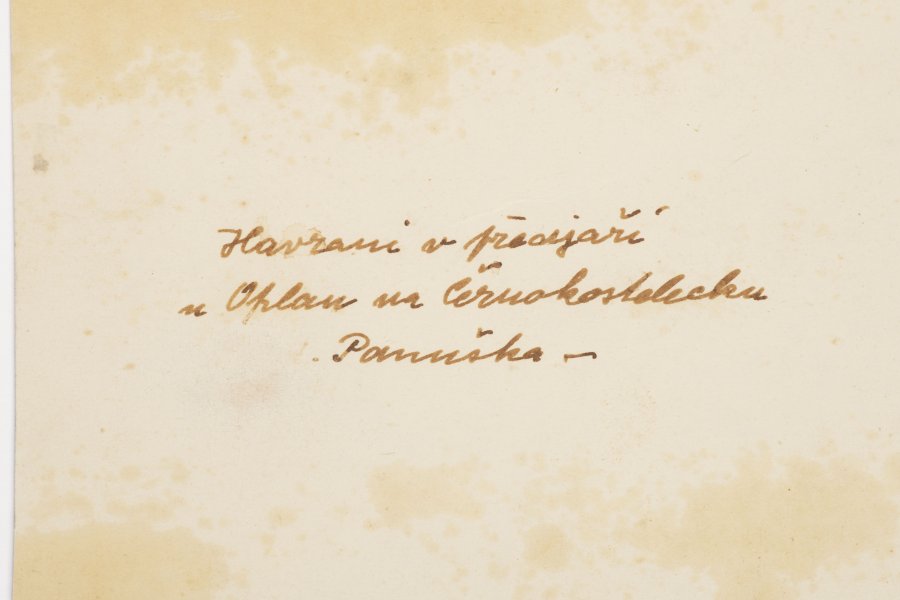 Havrani v předjaří
u Oplan na Černokostelecku
Panuška —